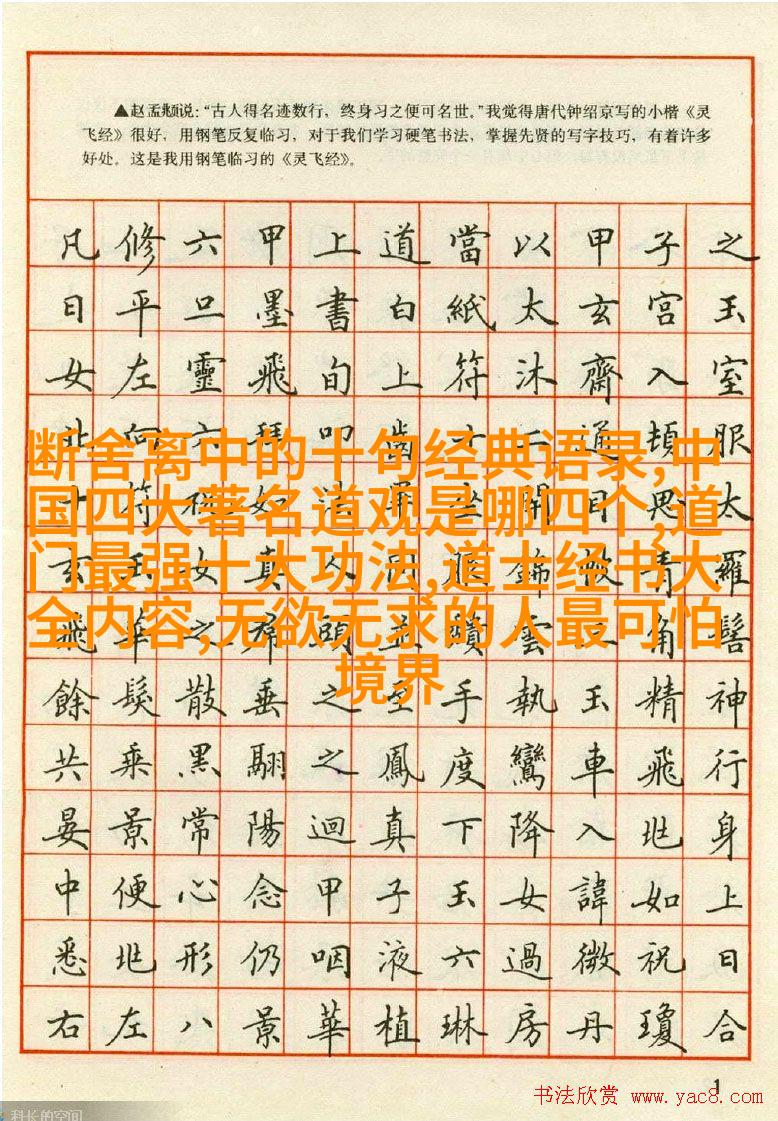 ▲赵孟頫说：“古人得名迹数行，终身习之便可名世。”我觉得唐代钟绍京写的小楷《灵
飞经》很好，用钢笔反复临习，对于我们学习硬笔书法，掌握先贤的写字技巧，有着许多
好处。这是我用钢笔临习的《灵飞经》。
凡修六甲上道當以甲子之
日平旦墨書白紙太玄宮玉
女左靈飛旬上符沐齋入室
北向六拜叩齒十二通頓服
十符祝如坐閉目思太
玄玉女真人同服錦帔青羅
飛華之帬頭並頹雲三角髻
餘髮散垂之至手執玉精神
共乘黑翮之鳳度鸞車飛行
晏景常陽迴真下降入兆身
中便心念甲子玉女諱如上
悉兆形仍咽液六過微祝日
右左八景華植琳房丹瓊合
断舍离中的十句经典语录,中
国四大著名道观是哪四个,道
门最强十大功法,道士经书大
全内容,无欲无求的人最可怕
境界
1
书法欣赏 www.yac8.com
科长的空间